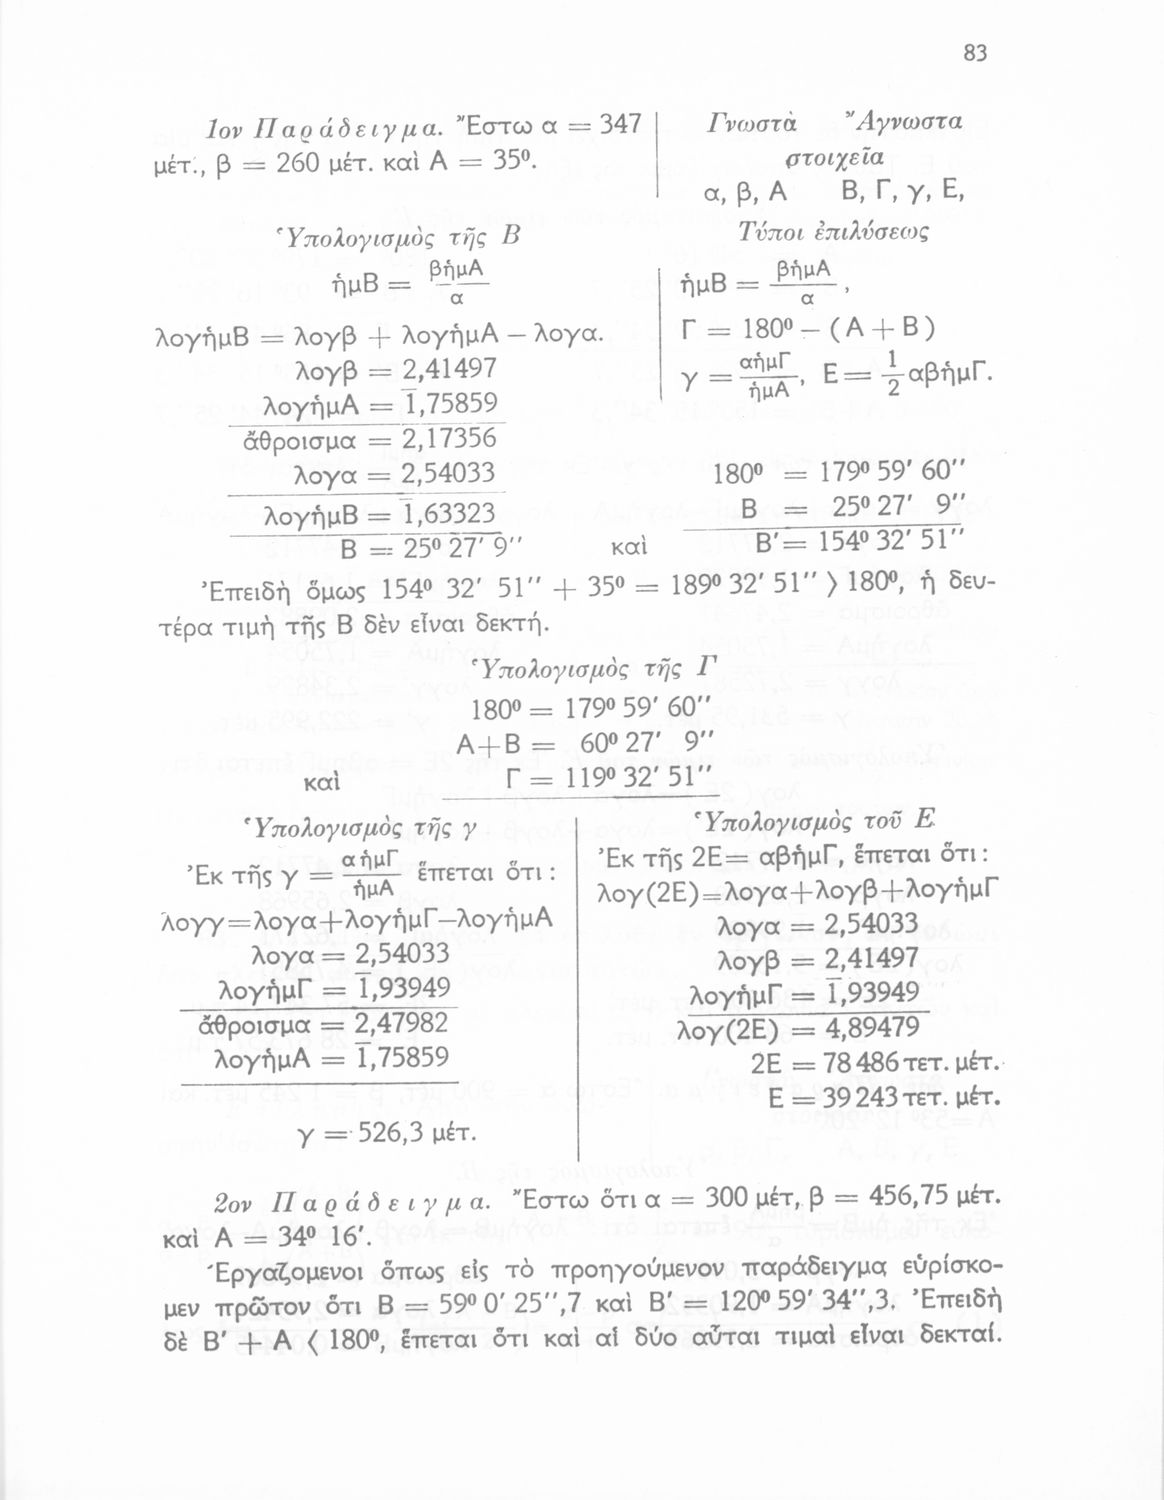 83
1ον Παράδειγμα. Ἔστω α = 347
μέτ., β = 260 μέτ. καὶ Α = 35⁰.
Γνωστὰ Ἄγνωστα
στοιχεῖα
α, β, Α Β, Γ, γ, Ε,
Ὑπολογισμὸς τῆς Β
ἡμΒ = βἡμΑ / α
λογἡμΒ = λογβ + λογἡμΑ – λογα.
λογβ = 2,41497
λογἡμΑ = 1̄,75859
ἄθροισμα = 2,17356
λογα = 2,54033
λογἡμΒ = 1̄,63323
Β = 25⁰ 27′ 9′′
Τύποι ἐπιλύσεως
ἡμΒ = βἡμΑ / α ,
Γ = 180⁰ – (Α + Β)
γ = αἡμΓ / ἡμΑ , Ε = 1/2 αβἡμΓ.
180⁰ = 179⁰ 59′ 60′′
Β = 25⁰ 27′ 9′′
καὶ Β′ = 154⁰ 32′ 51′′
Ἐπειδὴ ὅμως 154⁰ 32′ 51′′ + 35⁰ = 189⁰ 32′ 51′′ ⟩ 180⁰, ἡ δευ-
τέρα τιμὴ τῆς Β δὲν εἶναι δεκτή.
Ὑπολογισμὸς τῆς Γ
180⁰ = 179⁰ 59′ 60′′
Α+Β = 60⁰ 27′ 9′′
καὶ Γ = 119⁰ 32′ 51′′
Ὑπολογισμὸς τῆς γ
Ἐκ τῆς γ = αἡμΓ / ἡμΑ ἕπεται ὅτι :
λογγ=λογα+λογἡμΓ–λογἡμΑ
λογα = 2,54033
λογἡμΓ = 1̄,93949
ἄθροισμα = 2,47982
λογἡμΑ = 1̄,75859
γ = 526,3 μέτ.
Ὑπολογισμὸς τοῦ Ε
Ἐκ τῆς 2Ε= αβἡμΓ, ἕπεται ὅτι :
λογ(2Ε)=λογα+λογβ+λογἡμΓ
λογα = 2,54033
λογβ = 2,41497
λογἡμΓ = 1̄,93949
λογ(2Ε) = 4,89479
2Ε = 78 486 τετ. μέτ.
Ε = 39 243 τετ. μέτ.
2ον Παράδειγμα. Ἔστω ὅτι α = 300 μέτ, β = 456,75 μέτ.
καὶ Α = 34⁰ 16′.
Ἐργαζομενοι ὅπως εἰς τὸ προηγούμενον παράδειγμα εὑρίσκο-
μεν πρῶτον ὅτι Β = 59⁰ 0′ 25′′,7 καὶ Β′ = 120⁰ 59′ 34′′,3. Ἐπειδὴ
δὲ Β′ + Α ⟨ 180⁰, ἕπεται ὅτι καὶ αἱ δύο αὗται τιμαὶ εἶναι δεκταί.